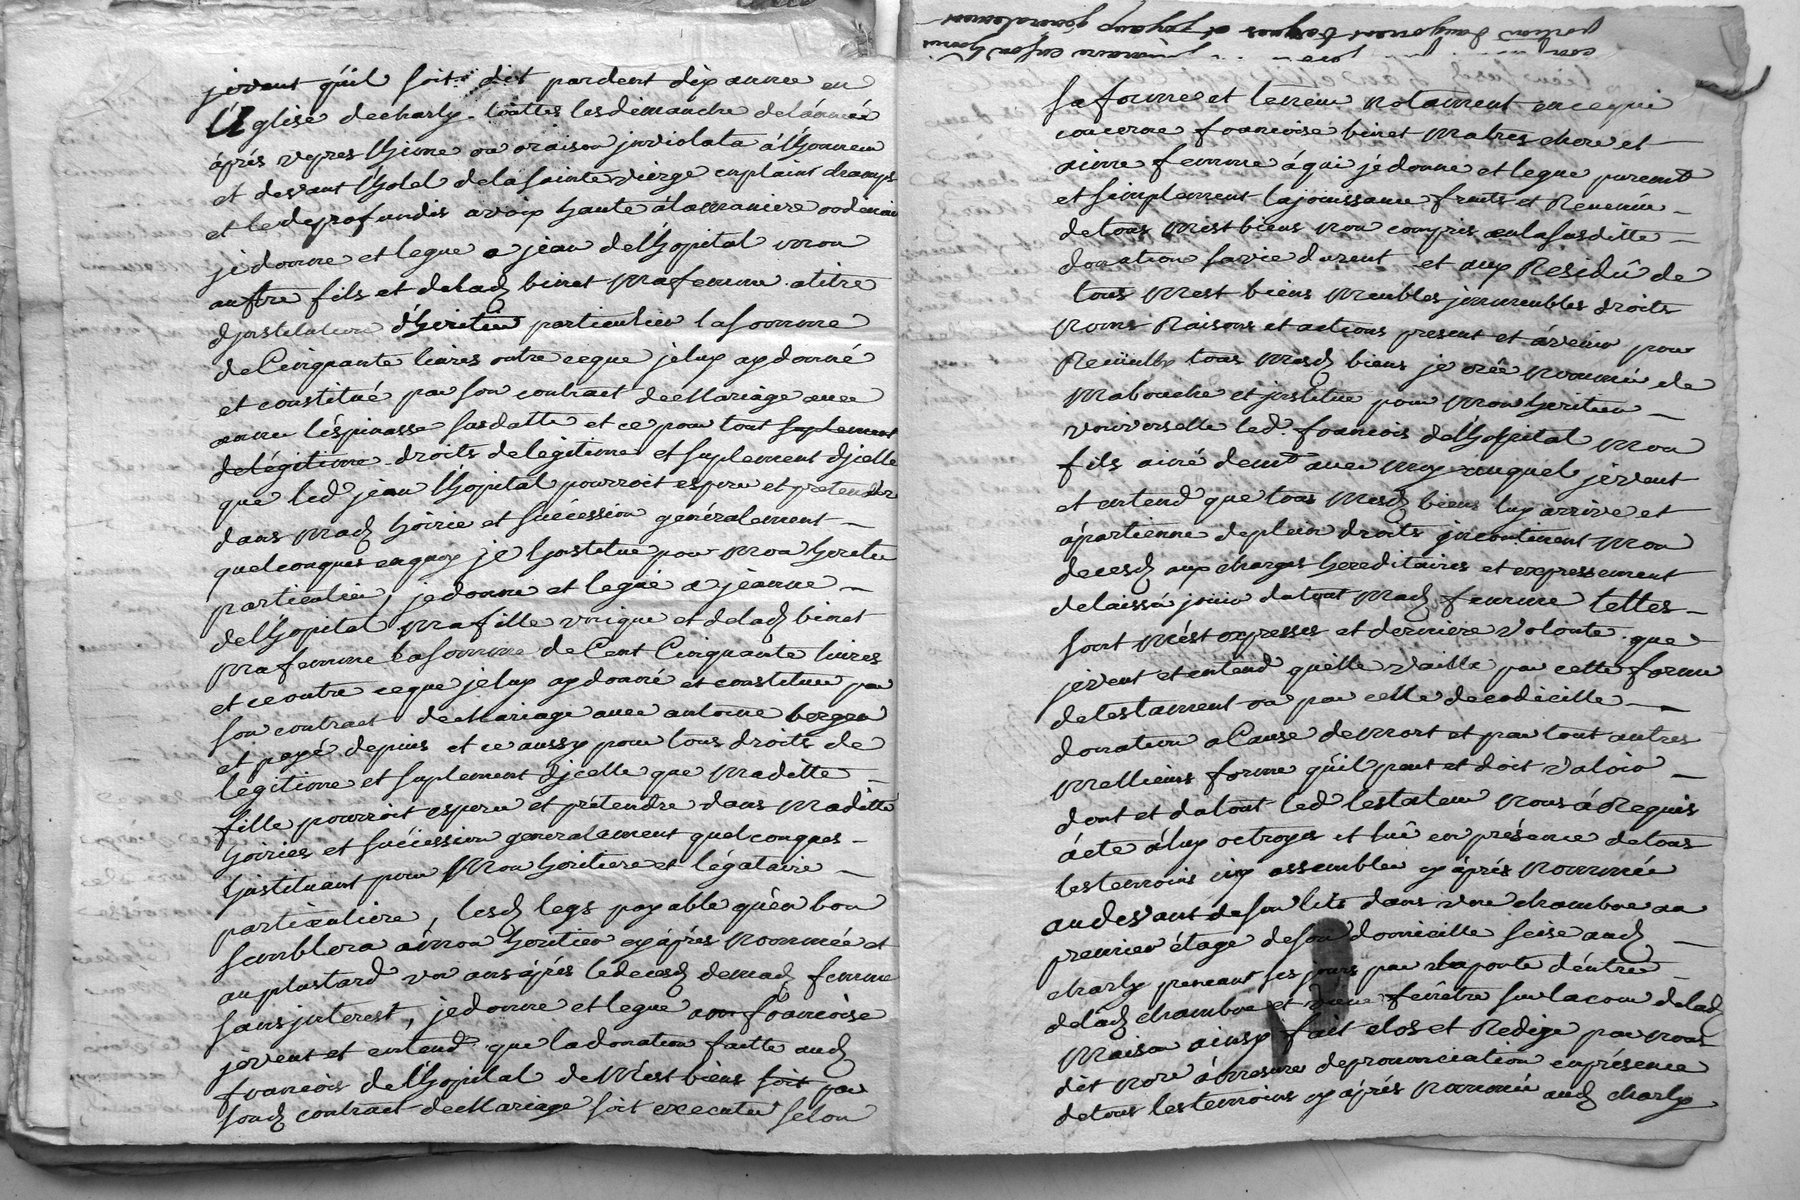 jeveut qu'il soit dit pandent dix année en
L'Eglise de charly touttes les dimanche de l'année
áprés vepres l'himne ou oraison jnviolata á l'honneur
et devant l'hotel de la sainte vierge en plaint champs
et le de profundis a voix haute á la maniere ordenaire
je donne et legue a jean de l'hopital mon
autre fils et delad binet ma femme a titre
d'jnstitution d'heritier particulier la somme
de Cinquante livres outre ce que je luy ay donné
et constitué par son contract de Mariage avec
anne l'éspinasse sus datte et ce pour tout suplement
de légitime droits de legitime et suplement d'jcelle
que led jean l'hopital pourroit esperer et pretendre
dans mad hoirie et succéssion generalement
quelconques en quoy je l'jnstitue pour mon heritier
particulier, je donne et legue a jeanne
de l'hopital ma fille vnique et delad binet
ma femme la somme de Cent Cinquante livres
et ce outre ce que je luy ay donné et constitué par
son contract de Mariage avec antoine berger
et payé depuis et ce aussy pour tous droits de
legitime et suplement d'jcelle que madette
fille pourroit esperer et prétendre dans maditte
hoiries et succéssion generalement quelconques
l'jnstituant pour mon heritiere et légataire
particuliere, lesd legs payable qu'en bon
semblera á mon heritier cy áprés nommée et
au plustard vn ans áprés le decesd de mad femme
sans jnterest, je donne et legue françoise
je veut et entend que la donation faitte aud
francois de l'hopital de mest biens soit par
sond contract de Mariage soit executer selon
sa forme et teneur notament en ce qui
concerne francoise binet ma tres chere et
aimé femme á qui je donne et legue purement
et simplement la jouissance fruits et Revenu
de tous mest biens non compris en la susditte
donation sa vie durent et aux Residû de
tous mest biens meubles jmmeubles droits
noms Raisons et actions present et ávenir pour
tous mesd biens je crée nommée de
ma bouche et jnstitue pour mon heritier
vniverselle led. francois de l'hopital mon
fils ainé demt avec moy auquel je veut
et entend que tous mesd biens luy arrive et
ápartienne de plein droits jncontinent mon
decesd aux charges hereditaires et expressement
de laissé jouir du tout mad femme telles
sont mést expresses et derniere volonté que
je veut et entend qu'elle vaille par cette forme
de testament ou par celle de codicille
donation a Cause de mort et par tout autres
mellieurs forme qu'il peut et doit valoir
dont et du tout led testateur nous á Requis
ácte á luy octroyer et luê en présence de tous
les temoins assemblée cy áprés nommée
au devant de son lits dans vne chambre au
premier étage de son domicille scise aud
charly prenant ses jours par la porte d'éntrée
de lad chambre et vne fenêtre sur la cour de lad
Maison ainsy fait clos et Redige par nous
dit nore á mesure de prononciation en présence
de tous les temoins cy áprés nommée aud charly